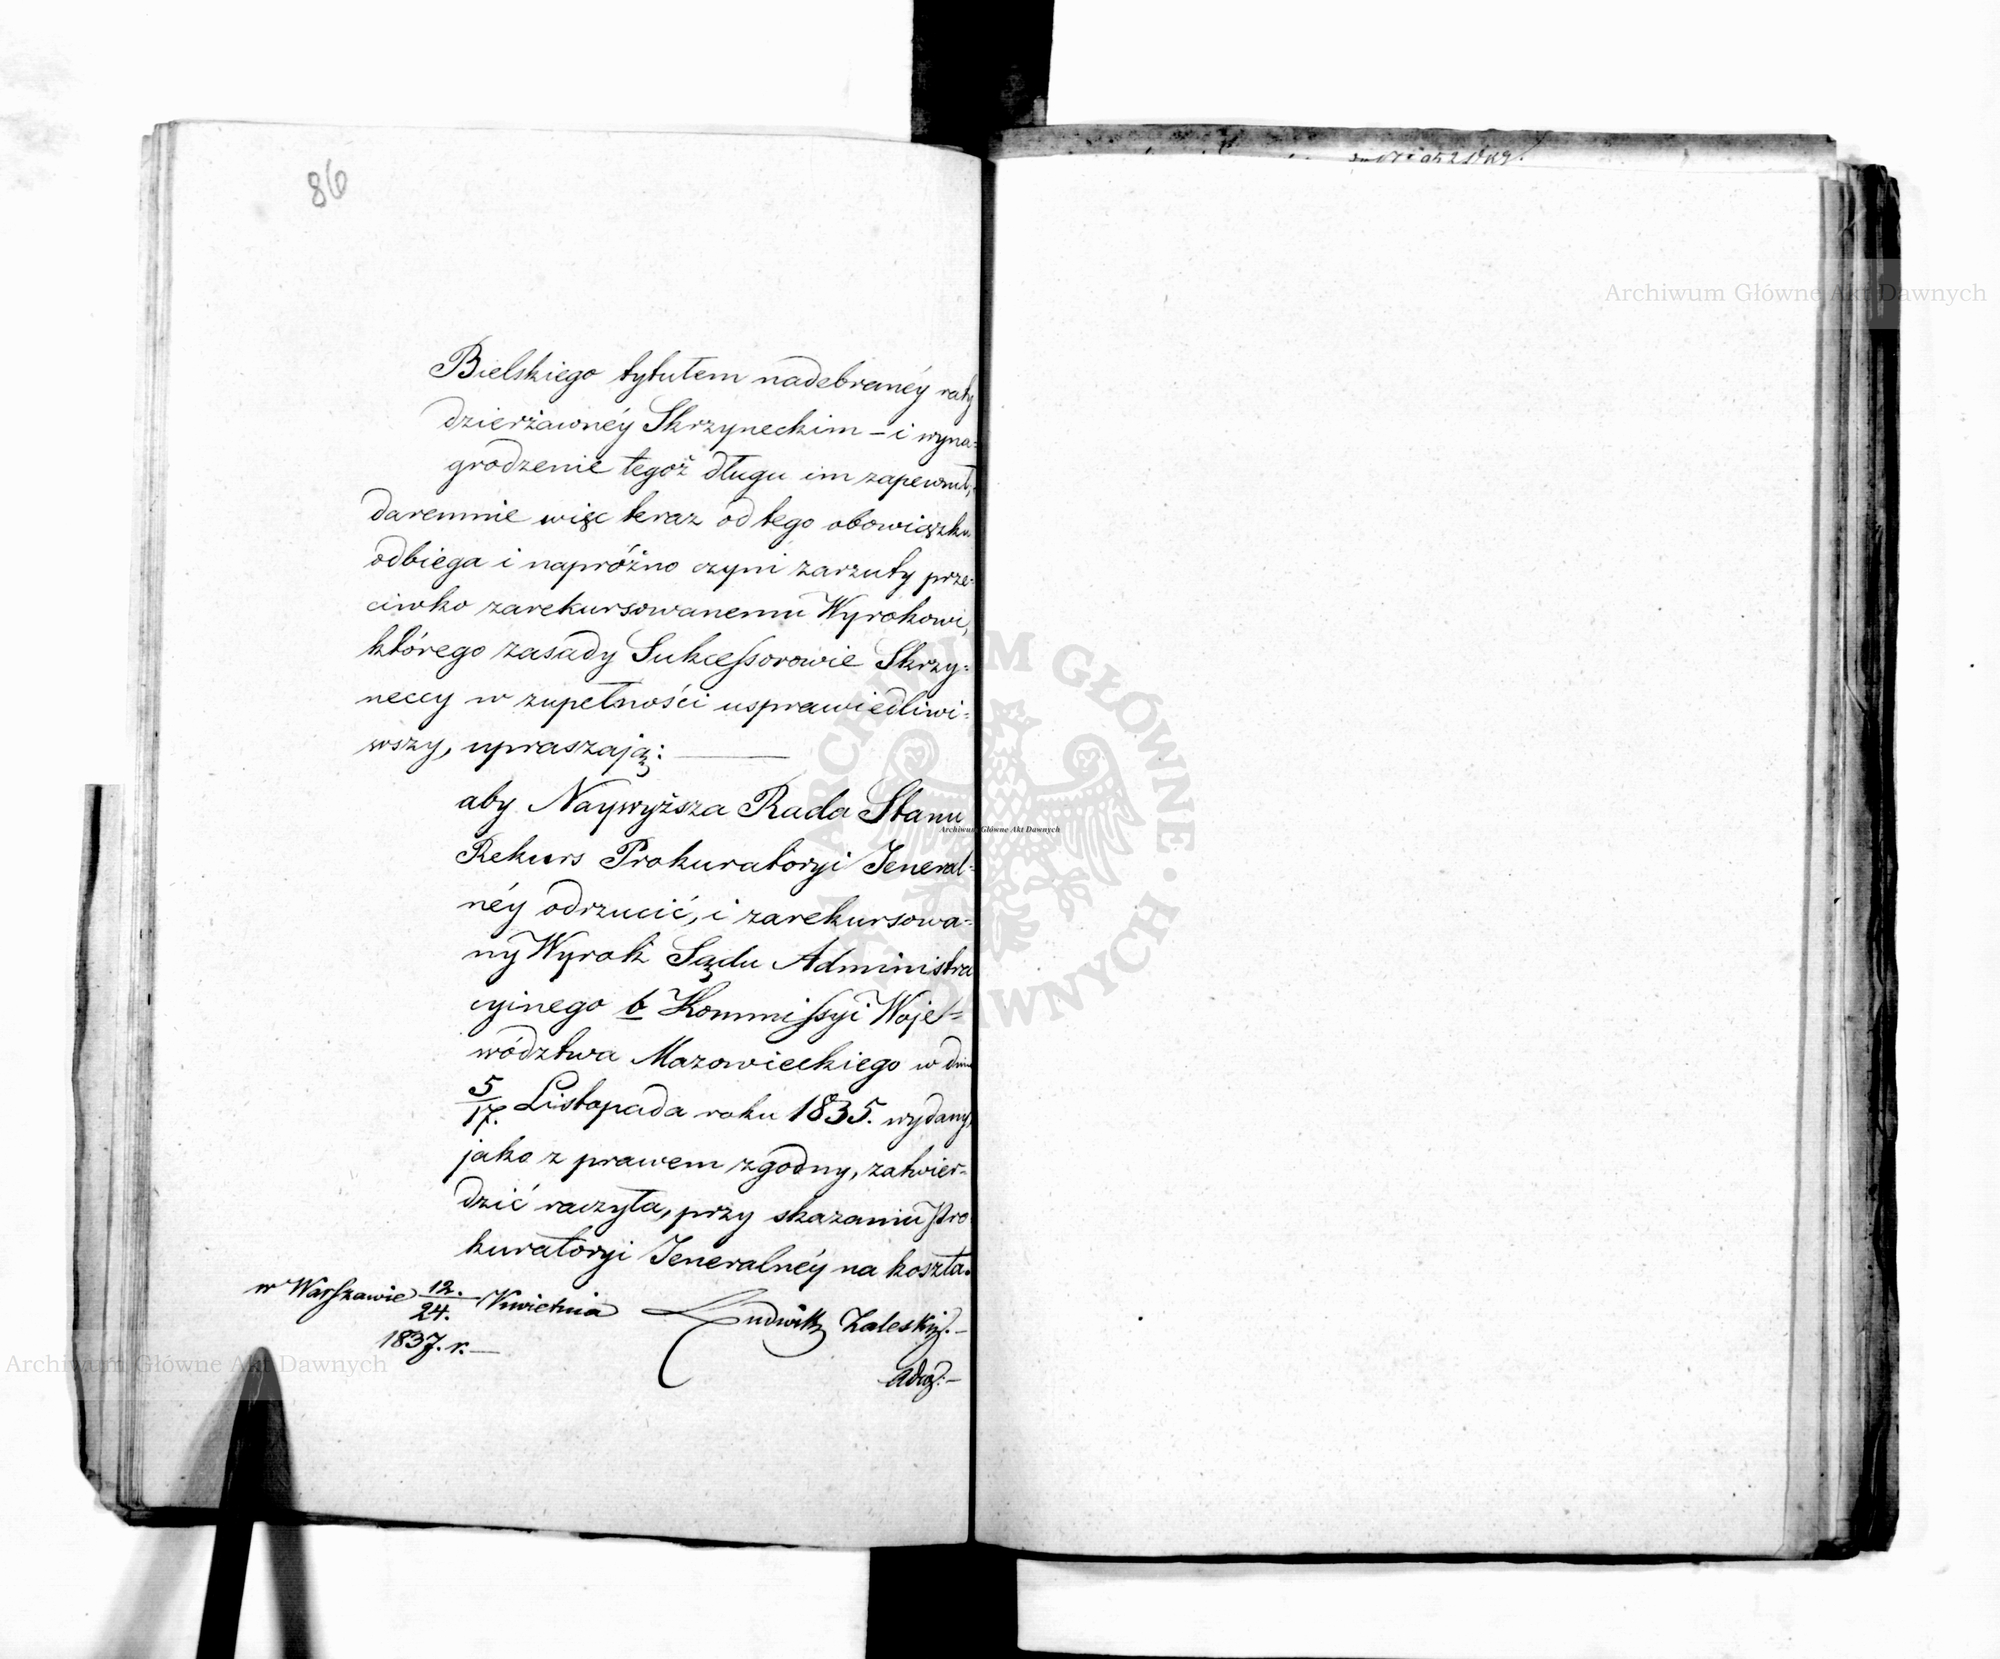 86
Bielskiego tytułem nadebranéy raty
dzierżawnéy Skrzyneckim – i wyna=
grodzenie tegoż długu im zapewnił,
daremnie więc teraz od tego obowiązku
odbiega i napróżno czyni zarzuty prze=
ciwko zarekursowanemu Wyrokowi,
którego zasady Sukcessorowie Skrzy=
neccy w zupełności usprawiedliwi=
wszy, upraszają:
aby Naywyższa Rada Stanu
Rekurs Prokuratoryi Jeneral=
néy odrzucić, i zarekursowa=
ny Wyrok Sądu Administra
cyinego b Kommissyi Woje=
wództwa Mazowieckiego w dniu
5/17. Listopada roku 1835. wydany,
jako z prawem zgodny, zatwier=
dzić raczyła, przy skazaniu Pro
kuratoryi Jeneralnéy na koszta.
w Warszawie 12./24. Kwietnia
1837. r.
Ludwik Zaleski.
Adw.
Archiwum Główne Akt Dawnych
Archiwum Główne Akt Dawnych
Archiwum Główne Akt Dawnych
ARCHIWUM GŁÓWNE AKT DAWNYCH